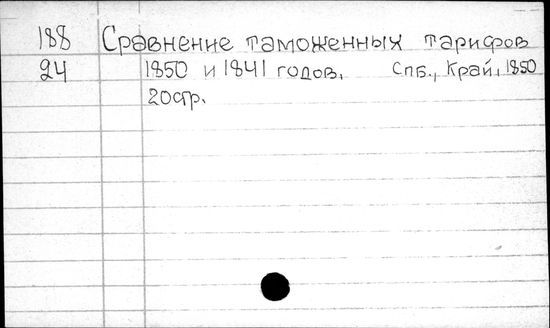 188 Сравнение таможенных тарифов
24 1850 и 1841 годов. Спб., Край, 1850
20стр.